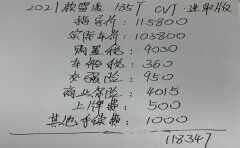 2021款雷凌 185T CVT·进取版
指导价:115800
车价:103800
购置税:9030
车船税:360
交强险:950
商业保险:4015
上牌费:500
其他手续费:1000
118347